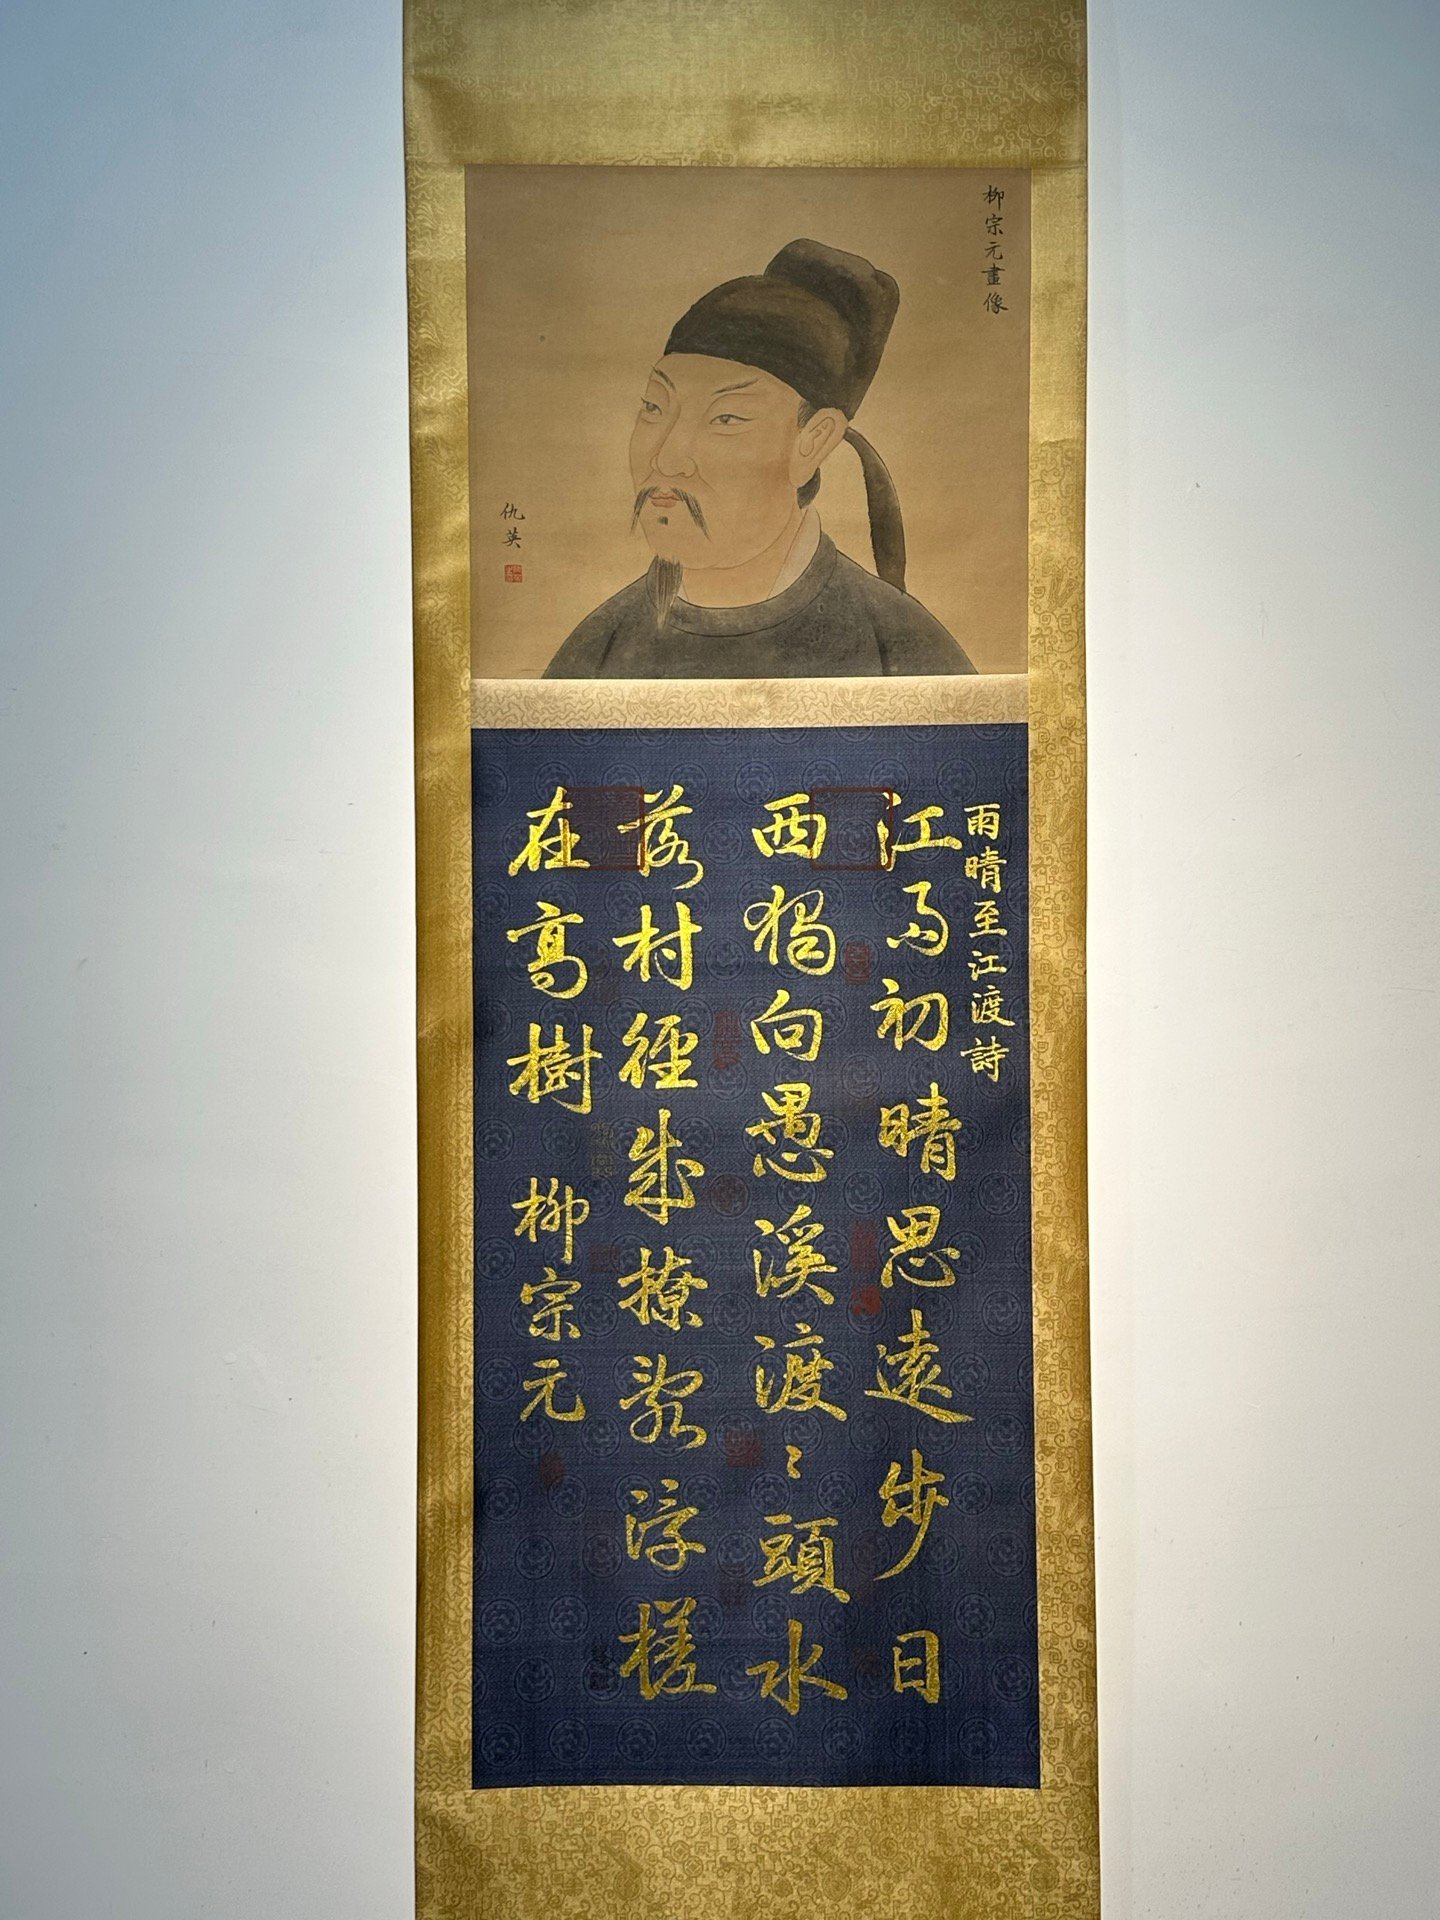 柳宗元畫像
仇英
雨晴至江渡詩
江雨初晴思遠步日
西獨向愚溪渡〻頭水
落村徑成撩亂浮槎
在高樹 柳宗元